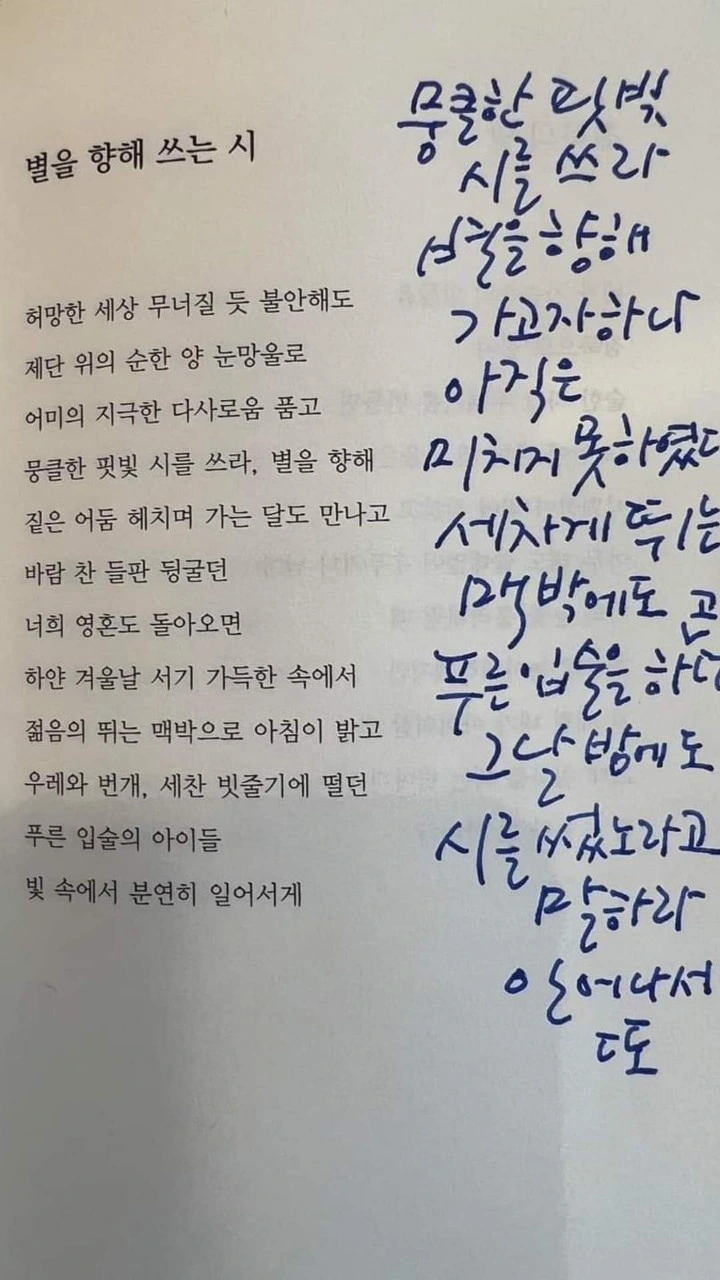 별을 향해 쓰는 시
허망한 세상 무너질 듯 불안해도
제단 위의 순한 양 눈망울로
어미의 지극한 다사로움 품고
뭉클한 핏빛 시를 쓰라, 별을 향해
짙은 어둠 헤치며 가는 달도 만나고
바람 찬 들판 뒹굴던
너희 영혼도 돌아오면
하얀 겨울날 서기 가득한 속에서
젊음의 뛰는 맥박으로 아침이 밝고
우레와 번개, 세찬 빗줄기에 떨던
푸른 입술의 아이들
빛 속에서 분연히 일어서게
뭉클한 핏빛
시를 쓰라
별을 향해
가고자 하나
아직은
미치지 못하였다
세차게 뛰는
맥박에도
푸른 입술을
그날 밤에도
시를 썼노라고
말하라
일어나서
또